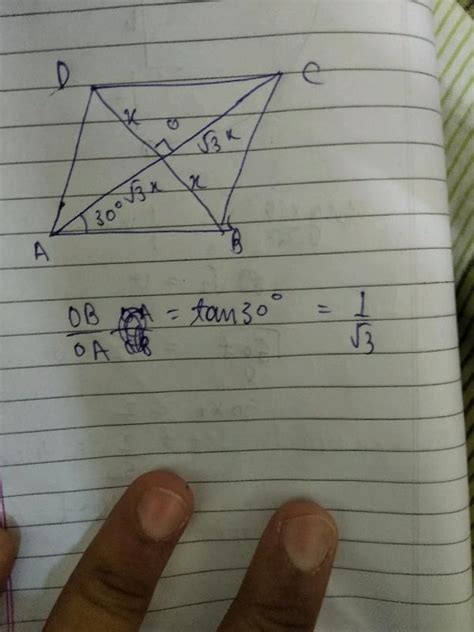 D C
x O √3x
√3x x
30°
A B
OB/OA = tan30° = 1/√3